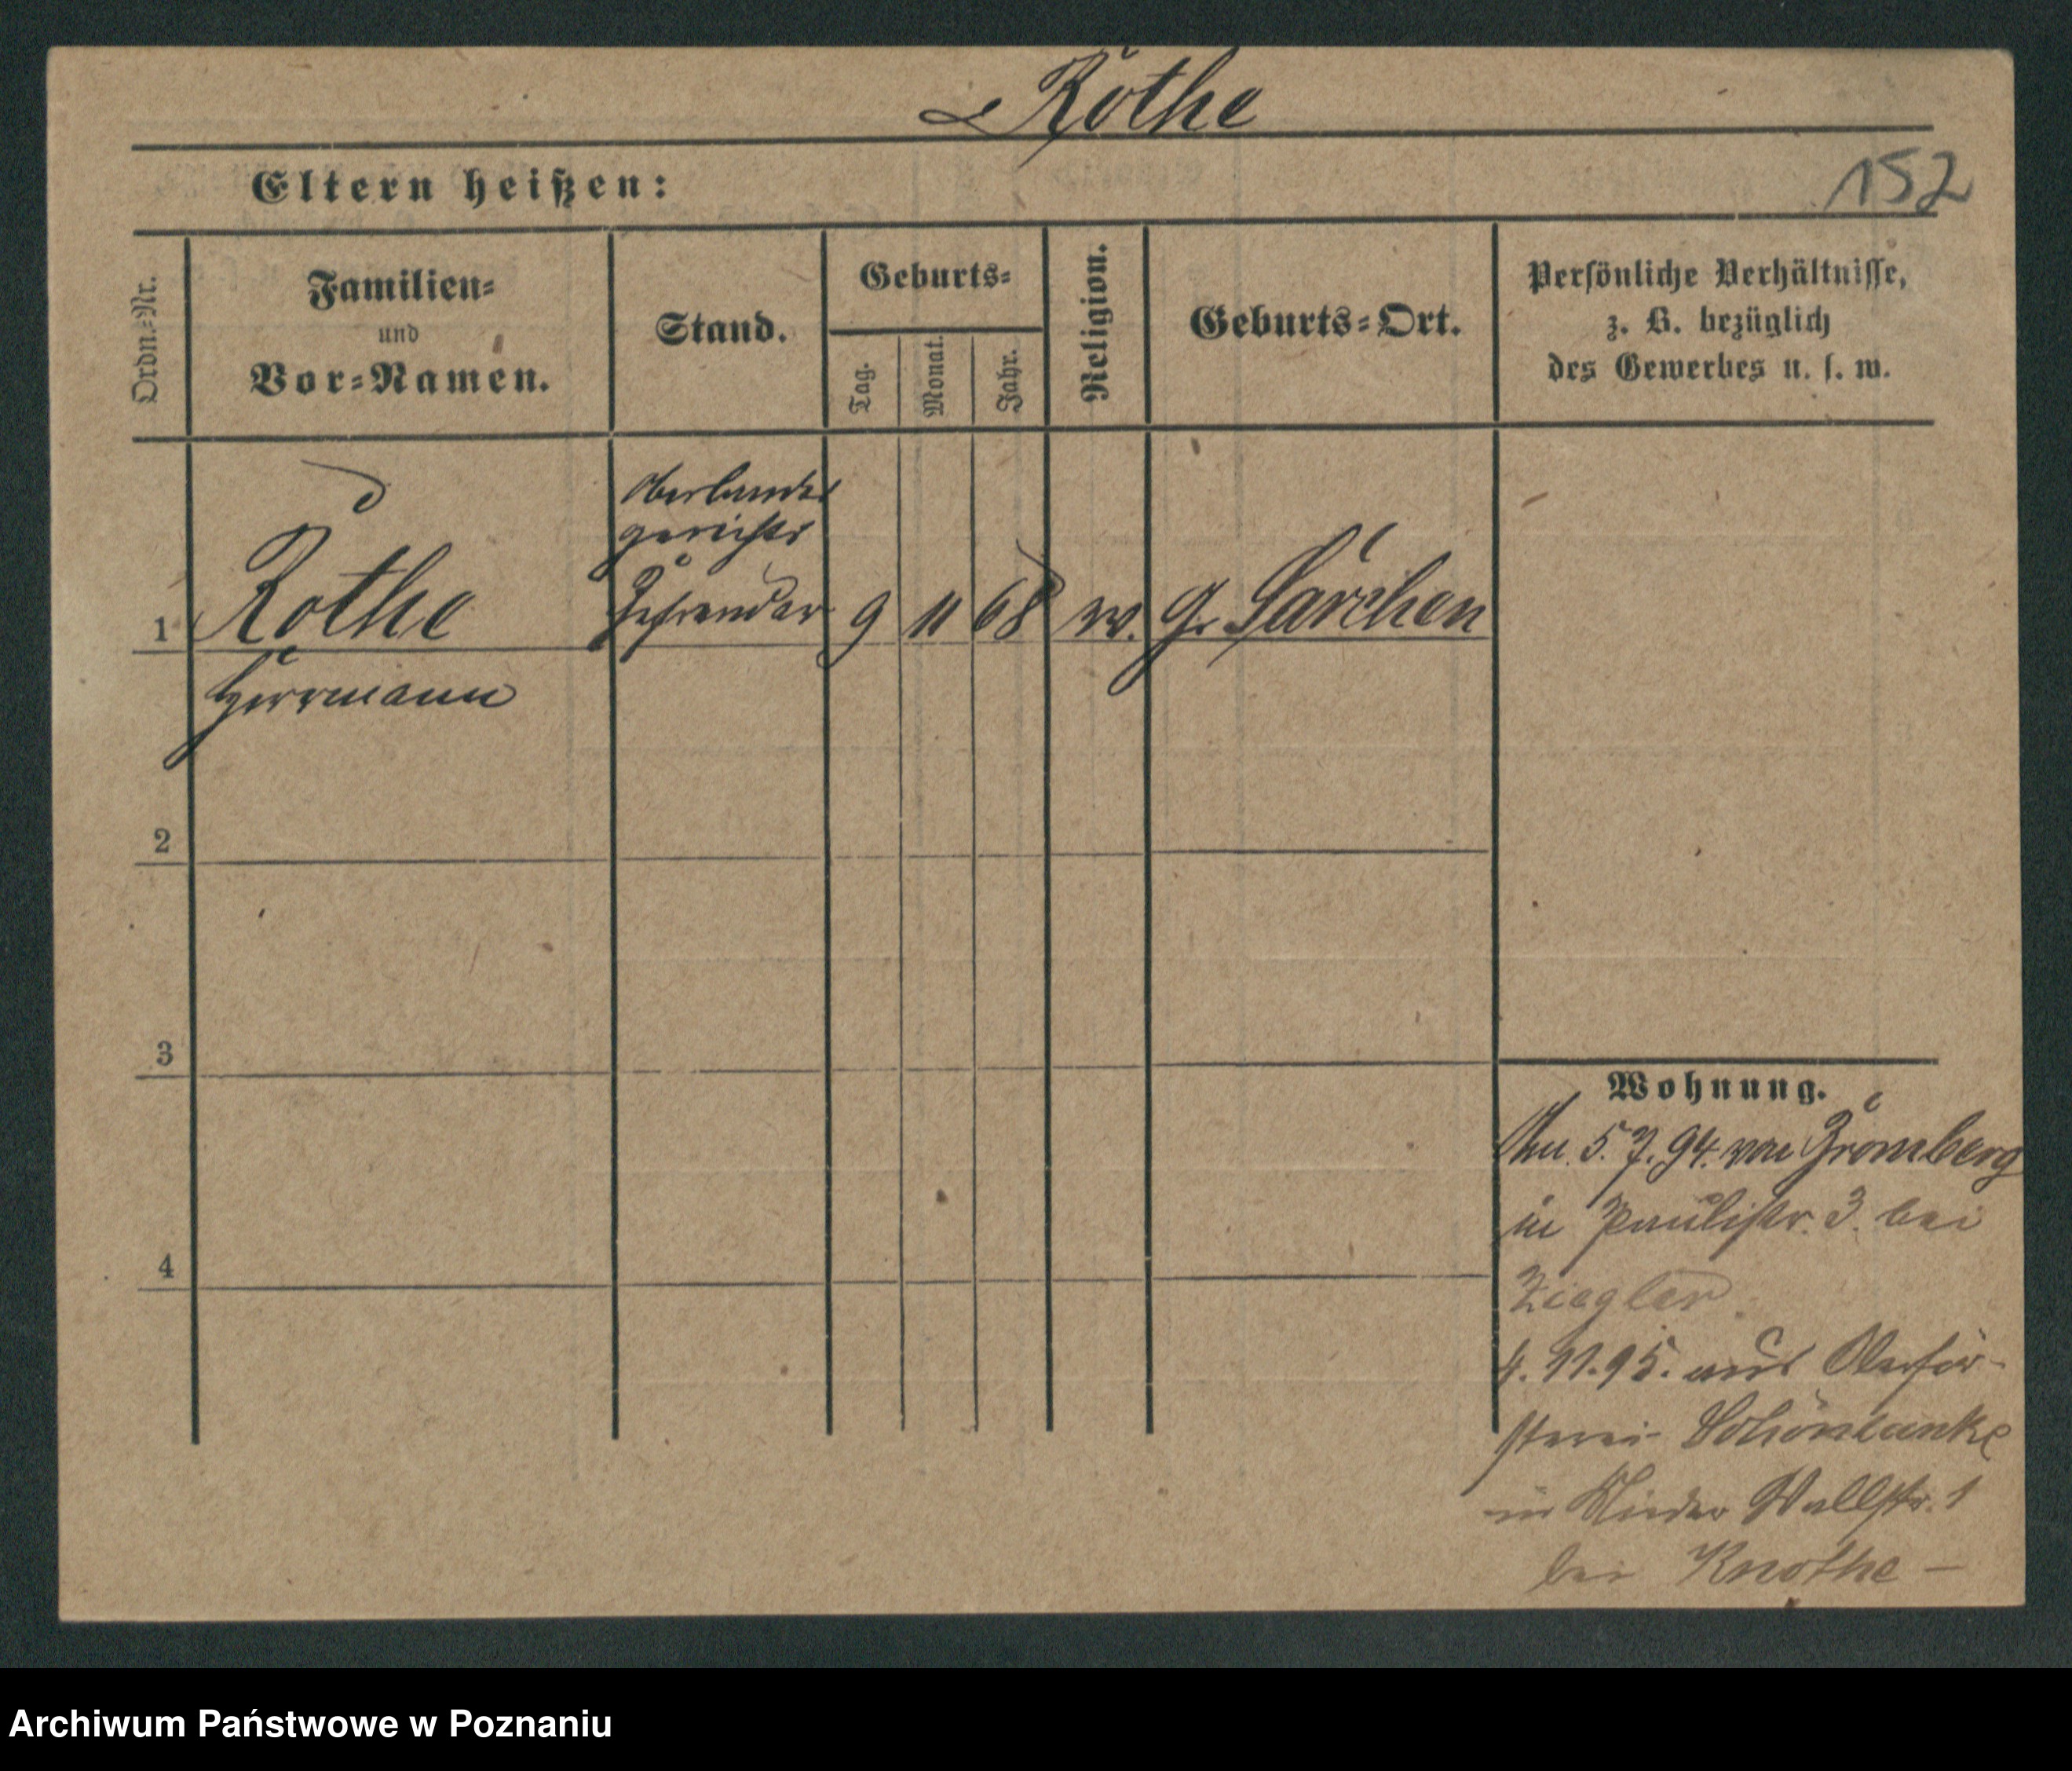 Rothe
Eltern heißen:
152
Ordn.-Nr.
Familien-
und
Vor-Namen.
Stand.
Geburts-
Tag.
Monat.
Jahr.
Religion.
Geburts-Ort.
Persönliche Verhältnisse,
z. B. bezüglich
des Gewerbes u. s. w.
Oberlandes
gerichts
1
Rothe
Referendar
9
11
68
Gr. Särchen
Herrmann
2
3
4
Wohnung.
5. 7. 94. von Bromberg
in Paulistr. 3. bei
Ziegler
4. 11. 95. aus Oberför-
sterei Schönlanke
in Nieder Wallstr. 1
bei Knothe –
Archiwum Państwowe w Poznaniu